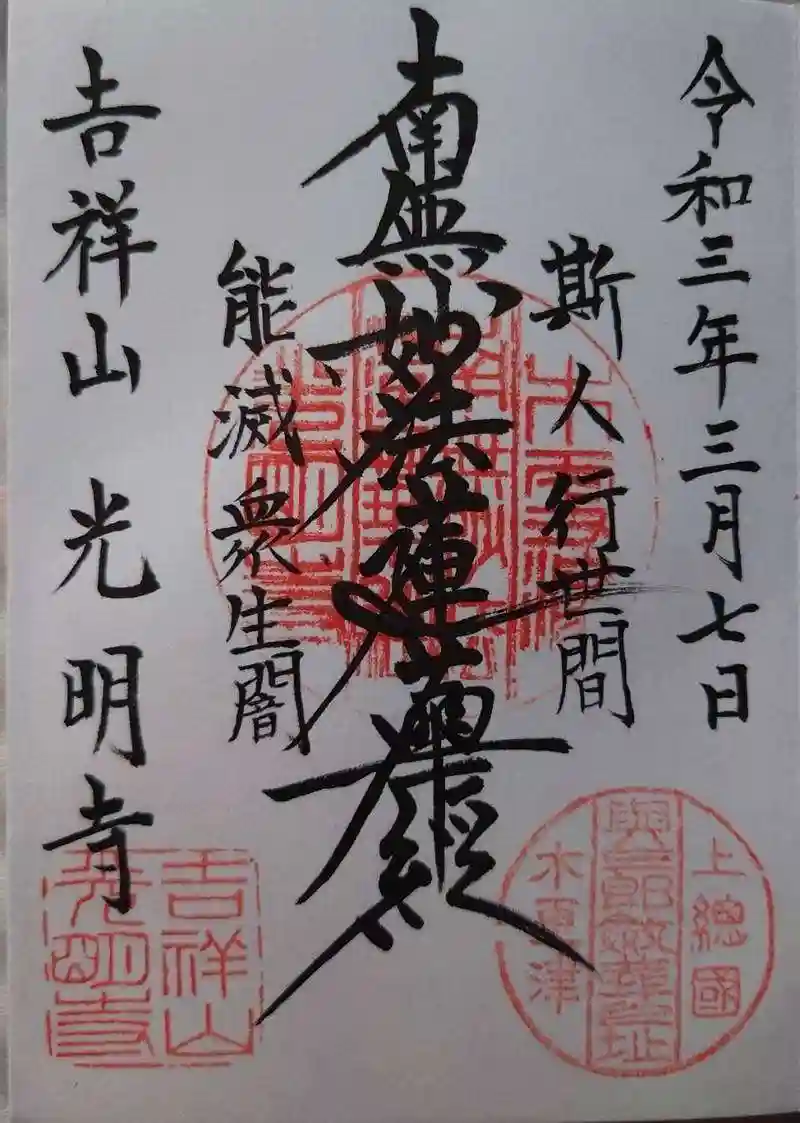 令和三年三月七日
斯人行世間
南無妙法蓮華経
能滅衆生闇
吉祥山 光明寺
上總國
木更津
吉祥山
光明寺